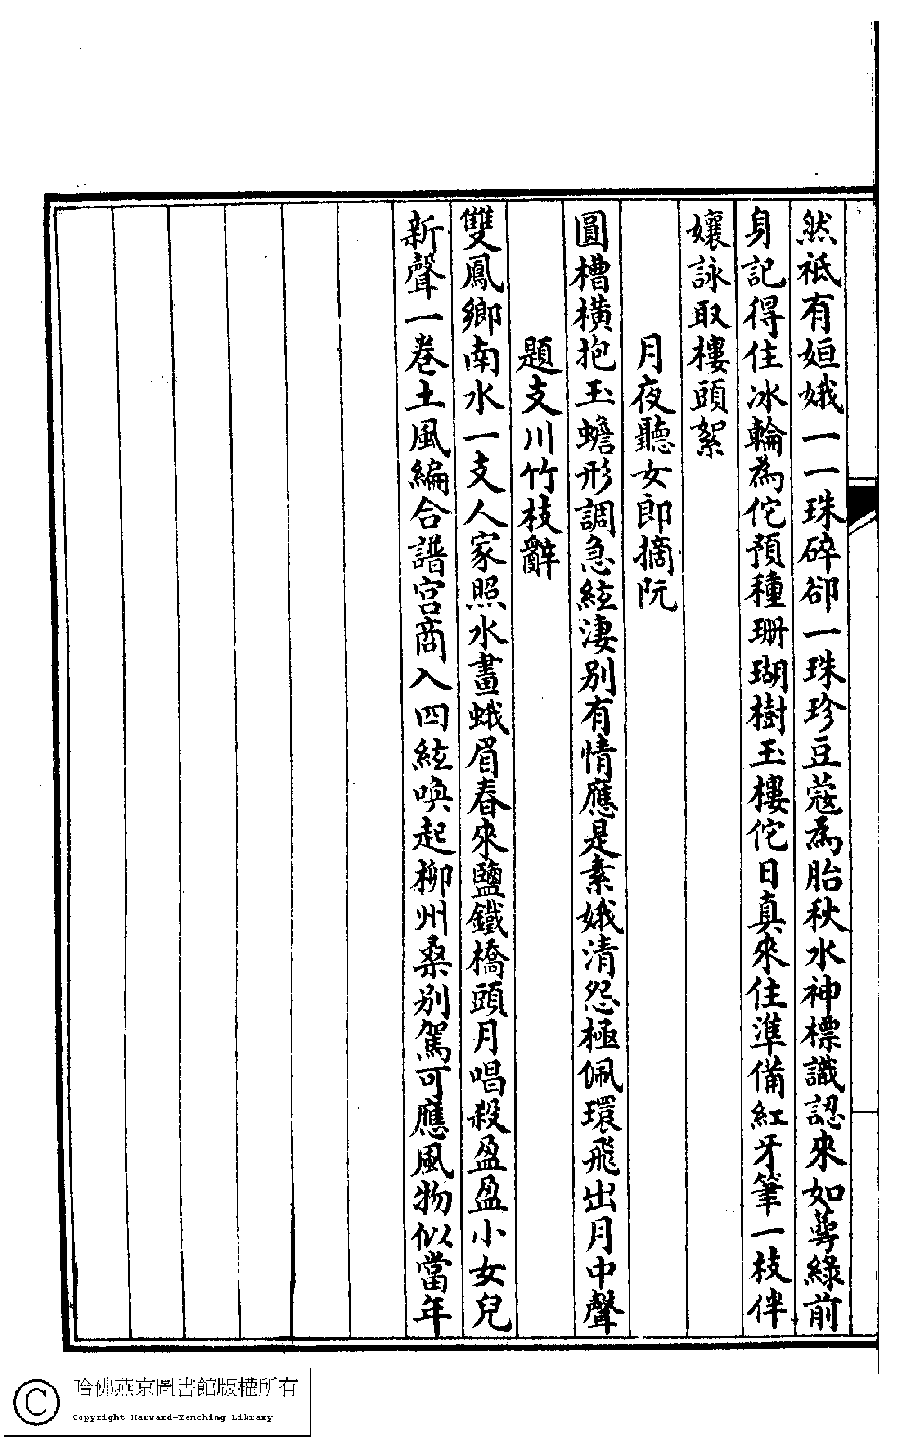 然祗有姮娥一一珠碎卻一珠珍豆蔻為胎秋水神標識認來如萼綠前
身記得住冰輪為佗預種珊瑚樹玉樓佗日真來住準備紅牙筆一枝伴
孃詠取樓頭絮
月夜聽女郎摘阮
圓槽橫抱玉蟾形調急絃淒別有情應是素娥清怨極佩環飛出月中聲
題支川竹枝辭
雙鳳鄉南水一支人家照水畫蛾眉春來鹽鐵橋頭月唱殺盈盈小女兒
新聲一卷土風編合譜宮商入四絃喚起柳州桑別駕可應風物似當年
哈佛燕京圖書館版權所有
Copyright Harvard-Yenching Library